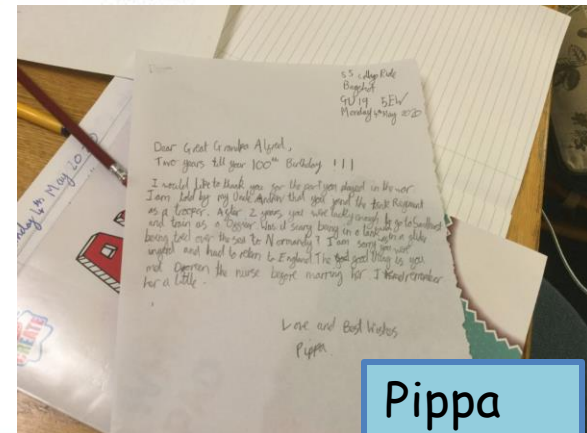 55 College Ride
Bagshot
GU19 5EW
Monday 4th May 2020
Dear Great Grandpa Alfred,
Two years till your 100th Birthday !!!
I would like to thank you for the part you played in the war.
I am told by my Uncle Andrew that you joined the tank Regiment
as a trooper. After 2 years, you were lucky enough to go to Sandhurst
and train as a Officer. Was it scary being in a tank in a glider
being towed over the sea to Normandy? I am sorry you were
injured and had to return to England. The good thing is you
met Doreen the nurse before marrying her. I remember
her a little.
Love and Best Wishes
Pippa
Monday 4th May 2020
CREATE
Pippa